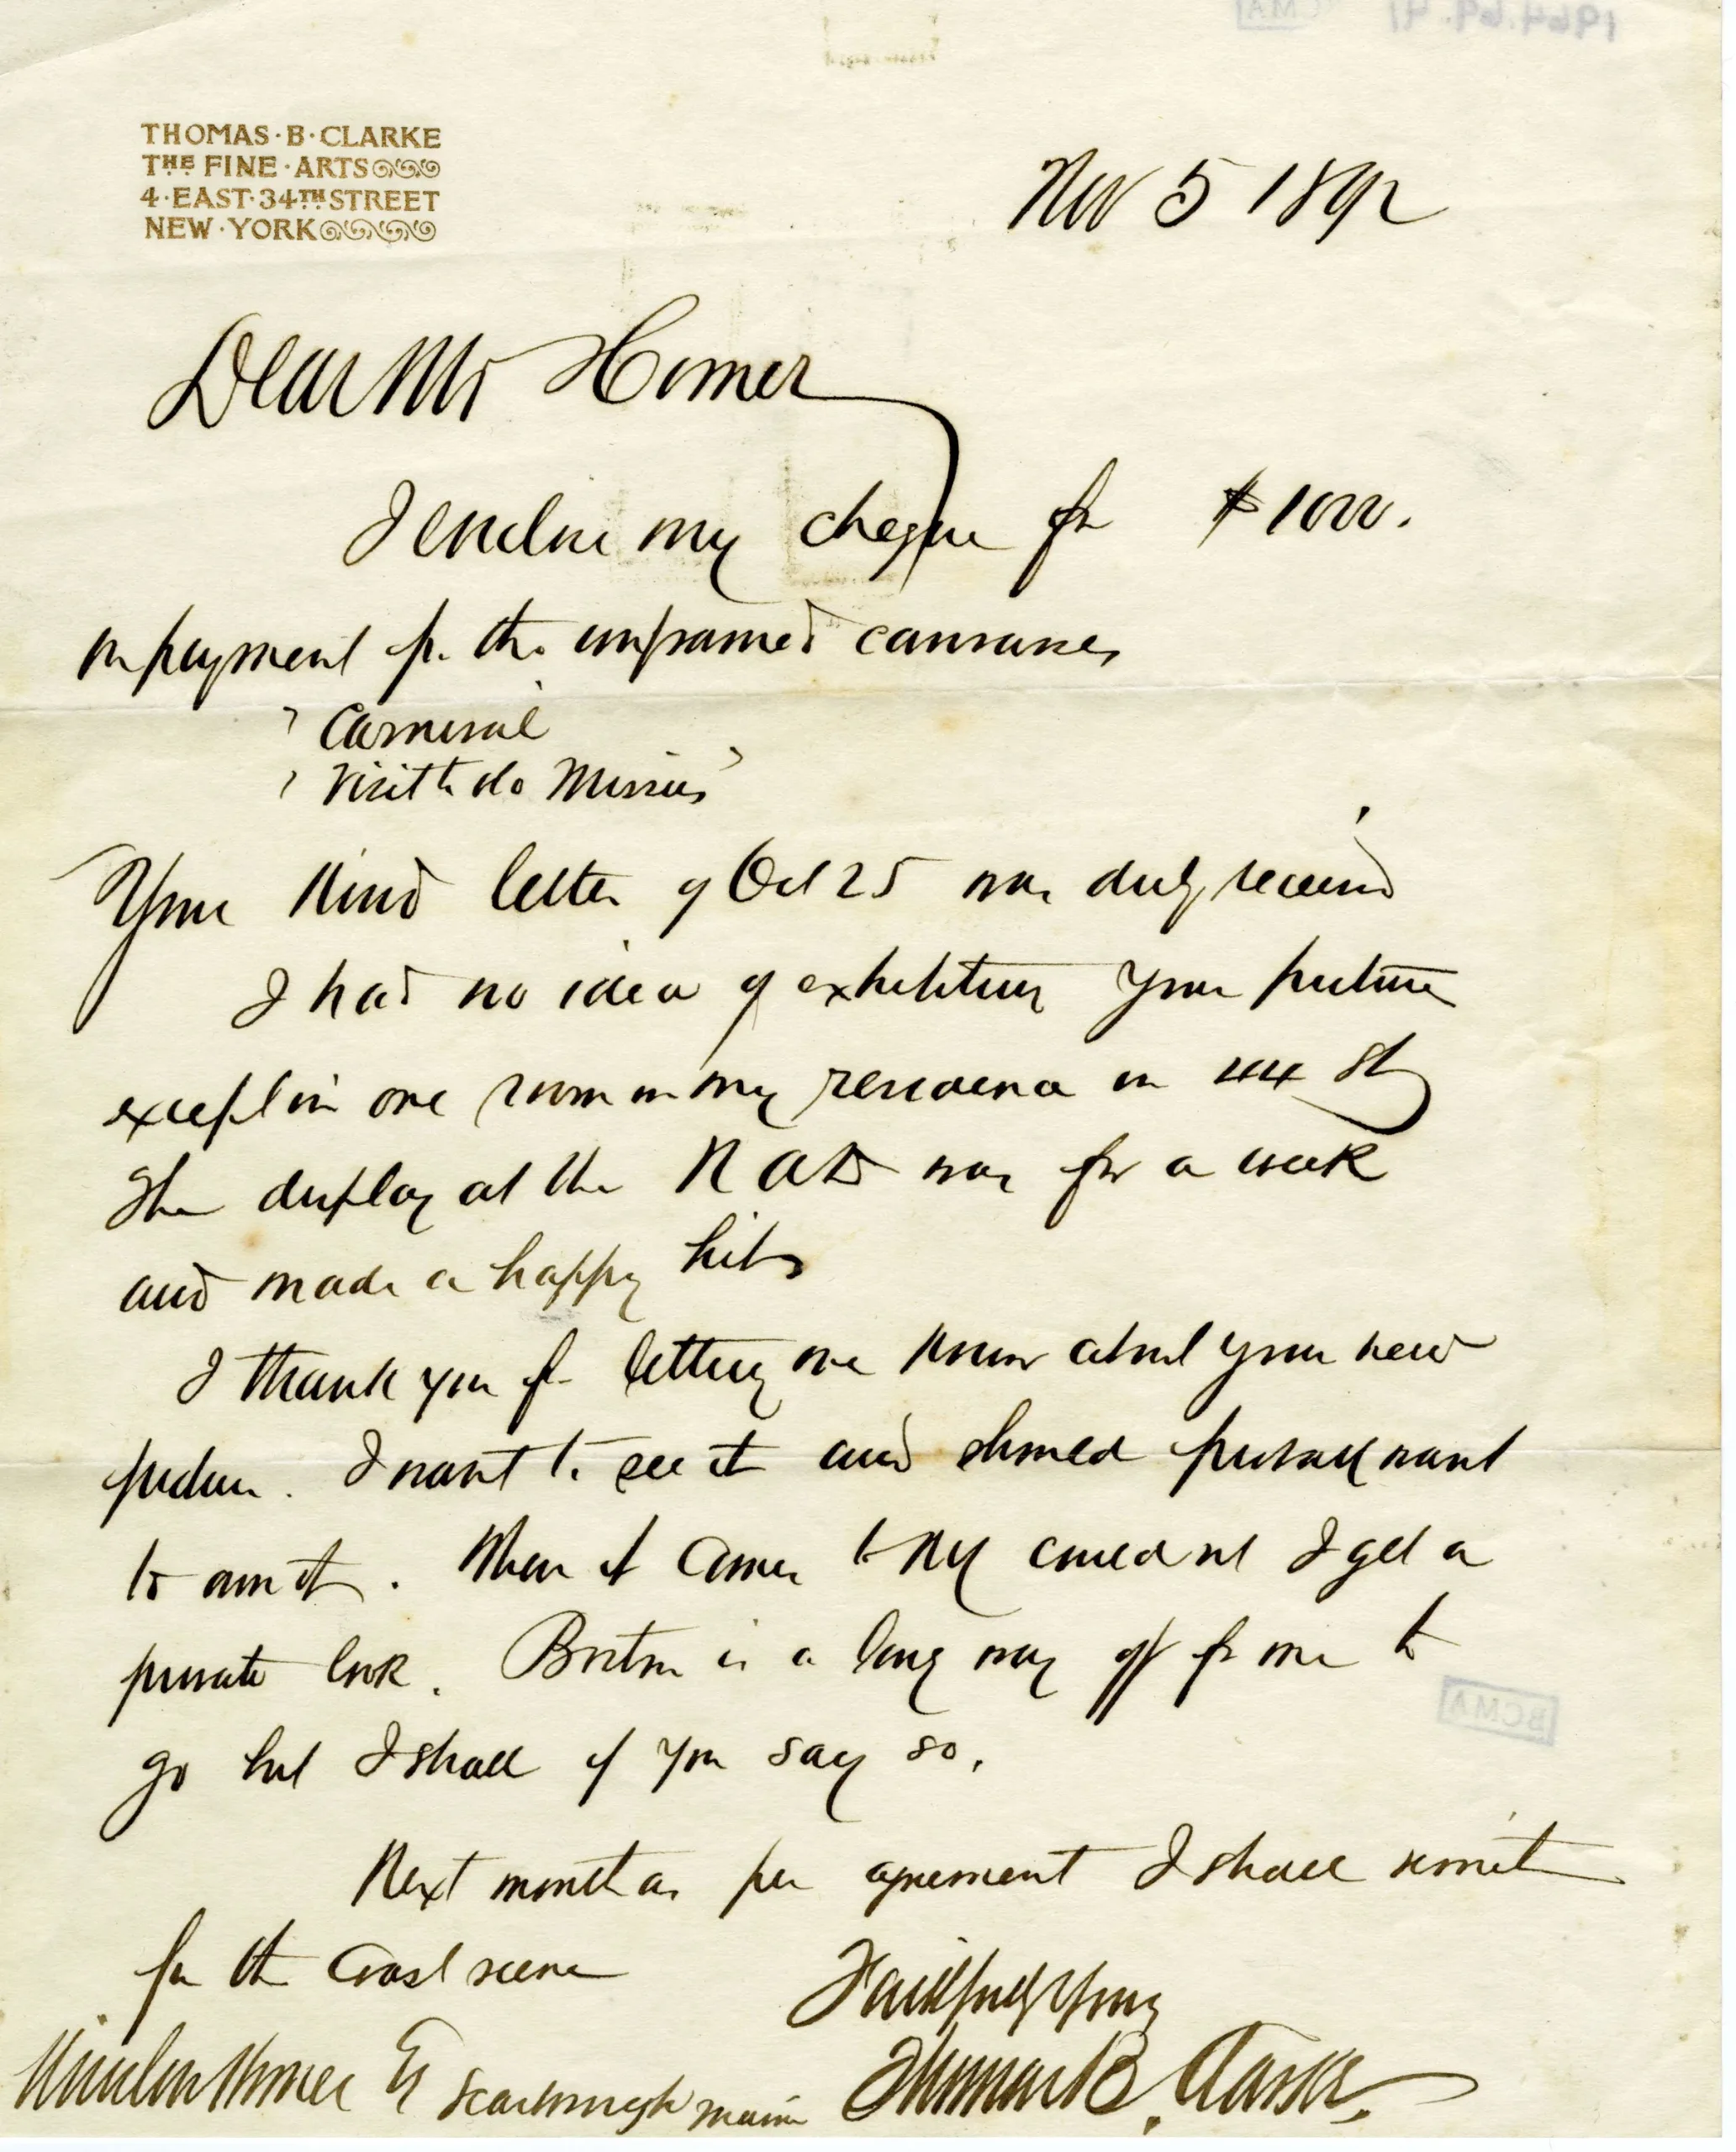 THOMAS·B·CLARKE
THE FINE·ARTS
4·EAST·34TH STREET
NEW·YORK
Nov 5 1892
Dear Mr Homer
I enclose my cheque for $1000.
in payment for the unframed canvases
"Carnival
"Visit to Ol Missus"
Your kind letter of Oct 25 was duly received
I had no idea of exhibiting your pictures
except in one room in my residence in 44 St
The display at the N A D was for a week
and made a happy hit
I thank you for letting me know about your new
picture. I want to see it and should personally want
to own it. When it comes to NY could not I get a
private look. Boston is a long way off for me to
go but I shall if you say so.
Next month as per agreement I shall remit
for the Coast scene
Faithfully Yours
Thomas B. Clarke
Winslow Homer Scarborough Maine
BCMA
1964.69.41